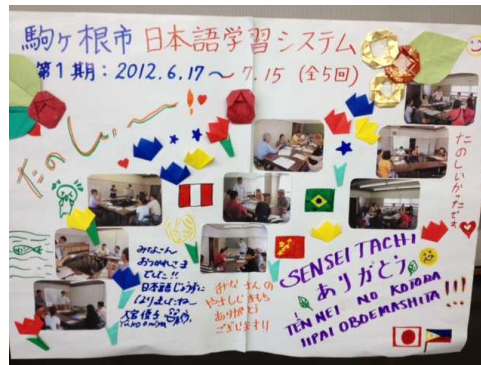 駒ヶ根市 日本語学習システム
第1期:2012.6.17～7.15 (全5回)
たのしぃー!
たのしいかったです
みなさん
おつかれさま
でした!!
日本語じょうずに
なりましたね
みなさんの
やさしいきもち
ありがとう
ございます!!
SENSEI TACHI
ありがとう
TEN NEI NO KOTOBA
IIPAI OBOEMASHITA!!!